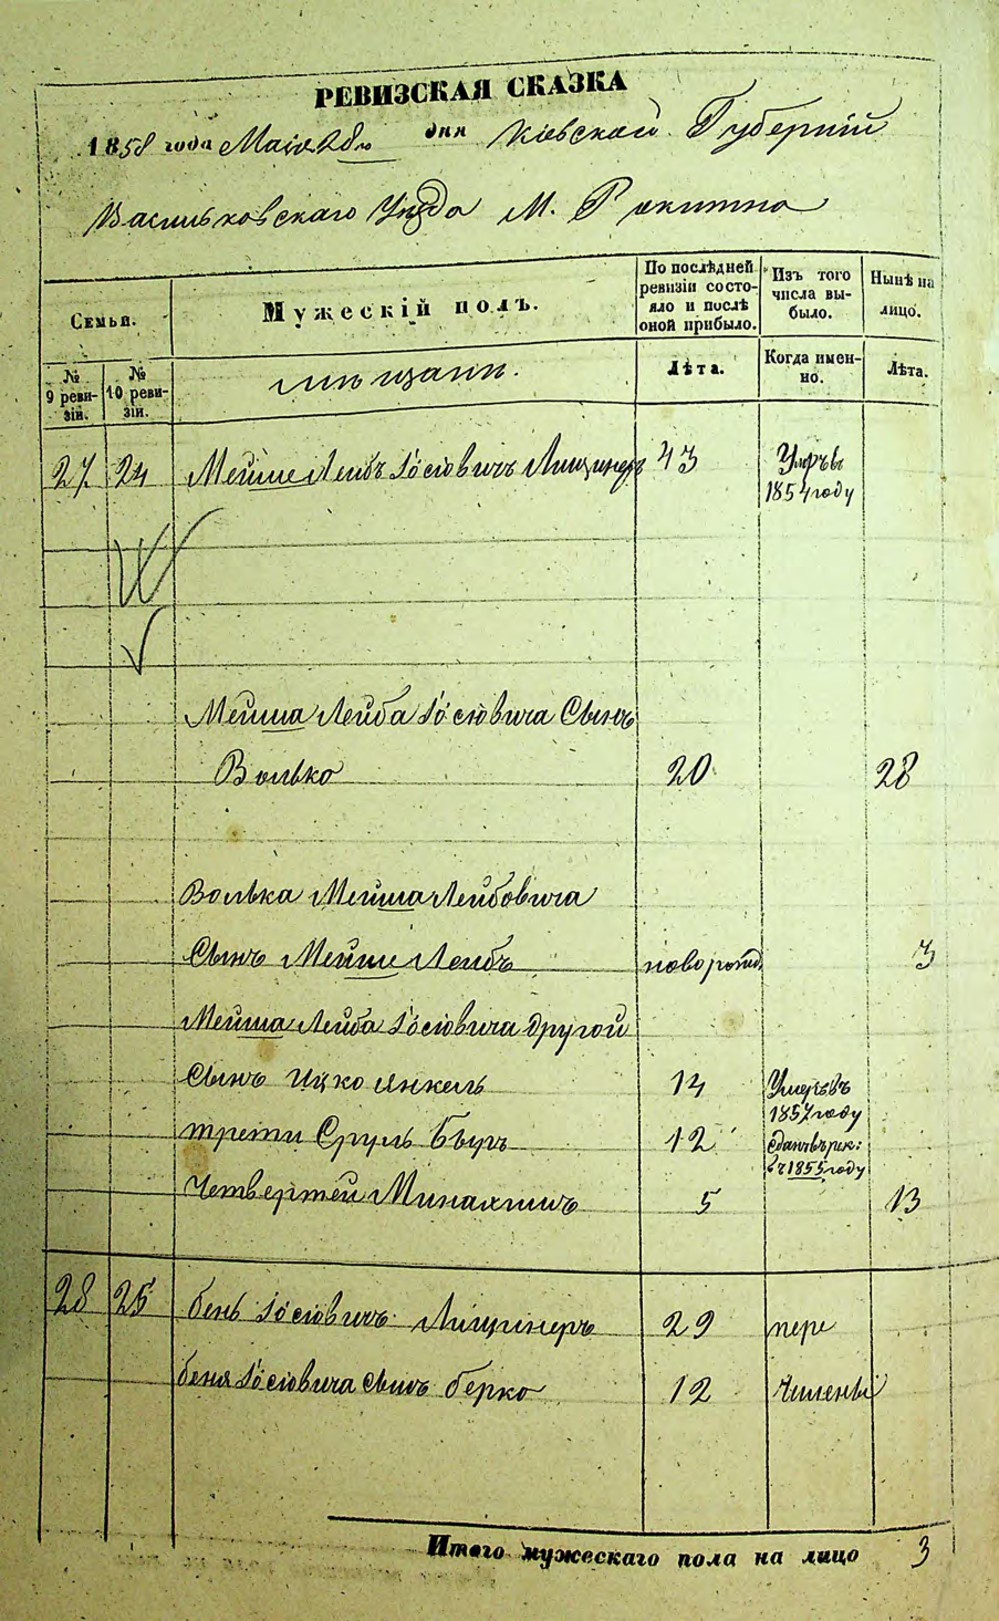 РЕВИЗСКАЯ СКАЗКА
1858 года Маія 28го дня Кіевской Губерніи
Васильковскаго Уѣзда М. Ракитно
Семьи.
Мужескій полъ.
По послѣдней ревизіи состояло и послѣ оной прибыло.
Изъ того числа выбыло.
Нынѣ на лицо.
№ 9 ревизіи.
№ 10 ревизіи.
мѣщани.
Лѣта.
Когда именно.
Лѣта.
27 24 Мейше Лейбъ Іосіовичъ Лищинеръ 43 Умръвъ
1854 году
Мейша Лейба Іосіовича Сынъ
Волько 20 28
Волька Мейша Лейбовича
Сынъ Мейше Лейбъ новорожд. 3
Мейша Лейба Іосіовича другой
Сынъ Ицко Янкель 14 Умръвъ
1857 году
трети Сруль Бѣръ 12 сданъ въ рек:
въ 1855 году
Четвертей Минахимъ 5 13
28 25 бень Іосіовичъ Лищинеръ 29 пере
беня Іосіовича сынъ берко 12 числены
Итого мужескаго пола на лицо 3